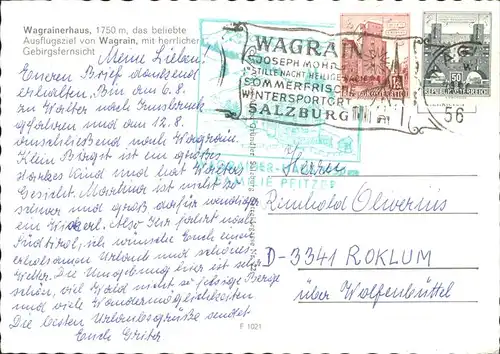 Wagrainerhaus, 1750 m, das beliebte
Ausflugsziel von Wagrain, mit herrlicher
Gebirgsfernsicht
Meine Lieben!
Euren Brief dankend
erhalten. Bin am 6.8.
zu Walter nach Innsbruck
gefahren und am 12.8.
anschließend nach Wagrain.
Klein Birgit ist ein großes
starkes Kind und hat Walters
Gesicht. Martina ist nicht so
schwer und groß dafür wendiger
ein Wickerl. Also Ihr fahrt nach
Südtirol, ich wünsche Euch einen
erholsamen Urlaub und schönes
Wetter. Die Umgebung hier ist sehr
schön, viel Wald nicht so felsige Berge
und viele Wandermöglichkeiten
Die besten Urlaubsgrüße sendet
Euch Grita
WAGRAIN
JOSEPH MOHR
STILLE NACHT HEILIGE
SOMMERFRISCHE
WINTERSPORTORT
SALZBURG
50
56
Herrn
Reinhold Oliverius
D-3341 ROKLUM
über Wolfenbüttel
F 1021